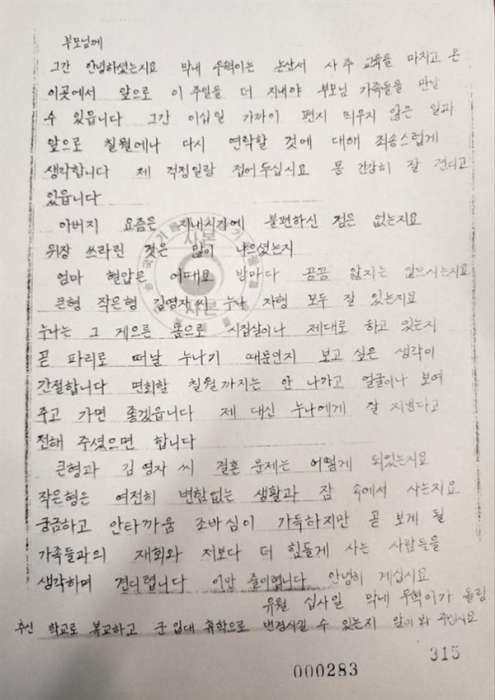 부모님께
그간 안녕하셨는지요 막내 우혁이는 논산서 사 주 교육을 마치고 온
이곳에서 앞으로 이 주일을 더 지내야 부모님 가족들을 만날
수 있읍니다 그간 이십 일 가까이 편지 띄우지 않은 일과
앞으로 칠월에나 다시 연락할 것에 대해 죄송스럽게
생각합니다 제 걱정일랑 집어두십시요 몸 건강히 잘 견디고
있읍니다
아버지 요즘은 지내시기에 불편하신 점은 없는지요
위장 쓰라린 것은 많이 나으셨는지
엄마 혈압은 어때요 밤마다 끙끙 앓지는 않으시는지요
큰형 작은형 김영자 씨 누나 자형 모두 잘 있는지요
누나는 그 게으른 몸으로 시집살이나 제대로 하고 있는지
곧 파리로 떠날 누나기 때문인지 보고 싶은 생각이
간절합니다 면회할 칠월까지는 안 나가고 얼굴이나 보여
주고 가면 좋겠읍니다 제 대신 누나에게 잘 지낸다고
전해 주셨으면 합니다
큰형과 김영자 씨 결혼 문제는 어떻게 되었는지요
작은형은 여전히 변함없는 생활과 잠 속에서 사는지요
궁금하고 안타까움 조바심이 가득하지만 곧 보게 될
가족들과의 재회와 저보다 더 힘들게 사는 사람들을
생각하며 견디렵니다 이만 줄이렵니다 안녕히 계십시요
유월 십사일 막내 우혁이가 올림
추신 학교로 복교하고 군입대 휴학으로 변경시킬 수 있는지 알아봐 주십시요
315
000283
사본